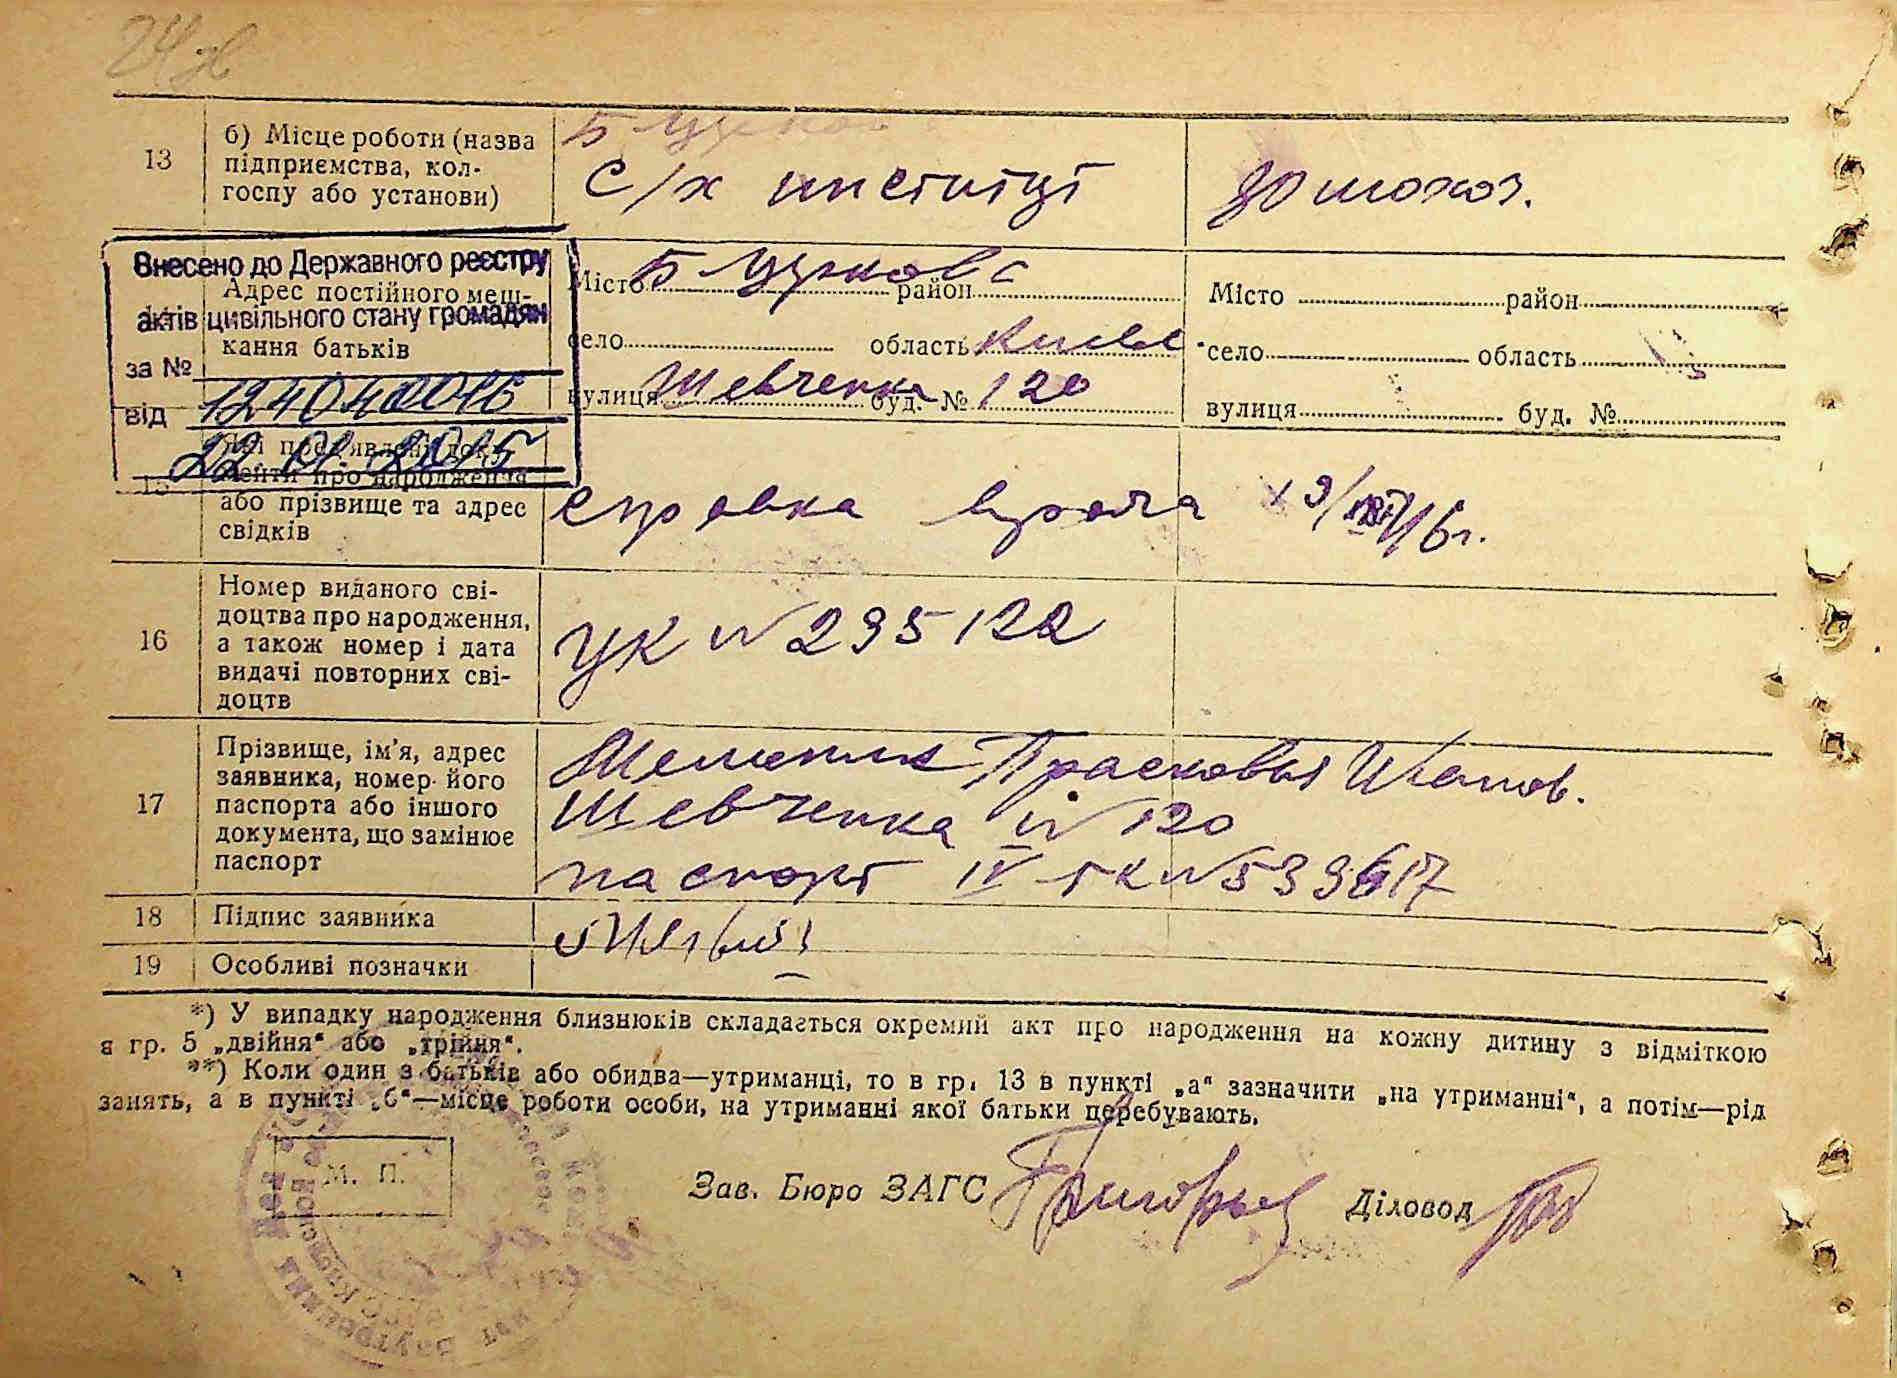 13
б) Місце роботи (назва
підприємства, кол-
госпу або установи)
Б Церков
с/х інститут
домохоз.
Внесено до Державного реєстру
актів цивільного стану громадян
за №
від
22. 01. 2015
Адрес постійного меш-
кання батьків
Місто Б Церков район
село область Києв
вулиця Шевченка буд. № 120
Місто район
село область
вулиця буд. №
15
або прізвище та адрес
свідків
справка врача
16
Номер виданого сві-
доцтва про народження,
а також номер і дата
видачі повторних сві-
доцтв
УК № 295122
17
Прізвище, ім'я, адрес
заявника, номер його
паспорта або іншого
документа, що замінює
паспорт
Прасковья Иванов.
Шевченка № 120
паспорт IV
18
Підпис заявника
19
Особливі позначки
*) У випадку народження близнюків складається окремий акт про народження на кожну дитину з відміткою
в гр. 5 „двійня“ або „трійня“.
**) Коли один з батьків або обидва—утриманці, то в гр. 13 в пункті „а“ зазначити „на утриманні“, а потім—рід
занять, а в пункті „б“—місце роботи особи, на утриманні якої батьки перебувають.
М. П.
Зав. Бюро ЗАГС
Діловод